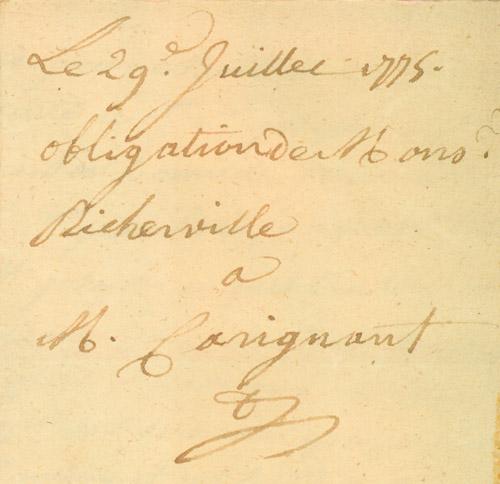 Le 29.e Juillet 1775.
obligation de Mons.r
Richerville
a
M. Carignant